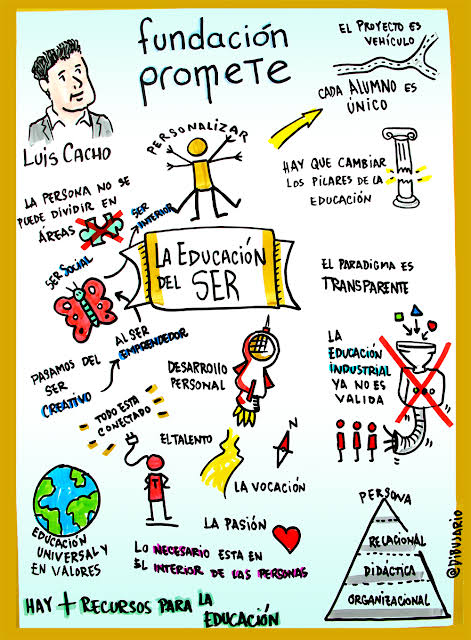 fundación
promete
LUIS CACHO
EL PROYECTO ES
VEHÍCULO
CADA ALUMNO ES
ÚNICO
PERSONALIZAR
HAY QUE CAMBIAR
LOS PILARES DE LA
EDUCACIÓN
LA PERSONA NO SE
PUEDE DIVIDIR EN
ÁREAS
SER
INTERIOR
SER SOCIAL
LA EDUCACIÓN
DEL SER
EL PARADIGMA ES
TRANSPARENTE
AL SER
EMPRENDEDOR
PASAMOS DEL
SER
CREATIVO
DESARROLLO
PERSONAL
LA
EDUCACIÓN
INDUSTRIAL
YA NO ES
VALIDA
TODO ESTA
CONECTADO
EL TALENTO
T
LA VOCACIÓN
LA PASIÓN
EDUCACIÓN
UNIVERSAL Y
EN VALORES
LO NECESARIO ESTA EN
EL INTERIOR DE LAS PERSONAS
PERSONA
RELACIONAL
DIDÁCTICA
ORGANIZACIONAL
@DIBUSARIO
HAY + RECURSOS PARA LA
EDUCACIÓN